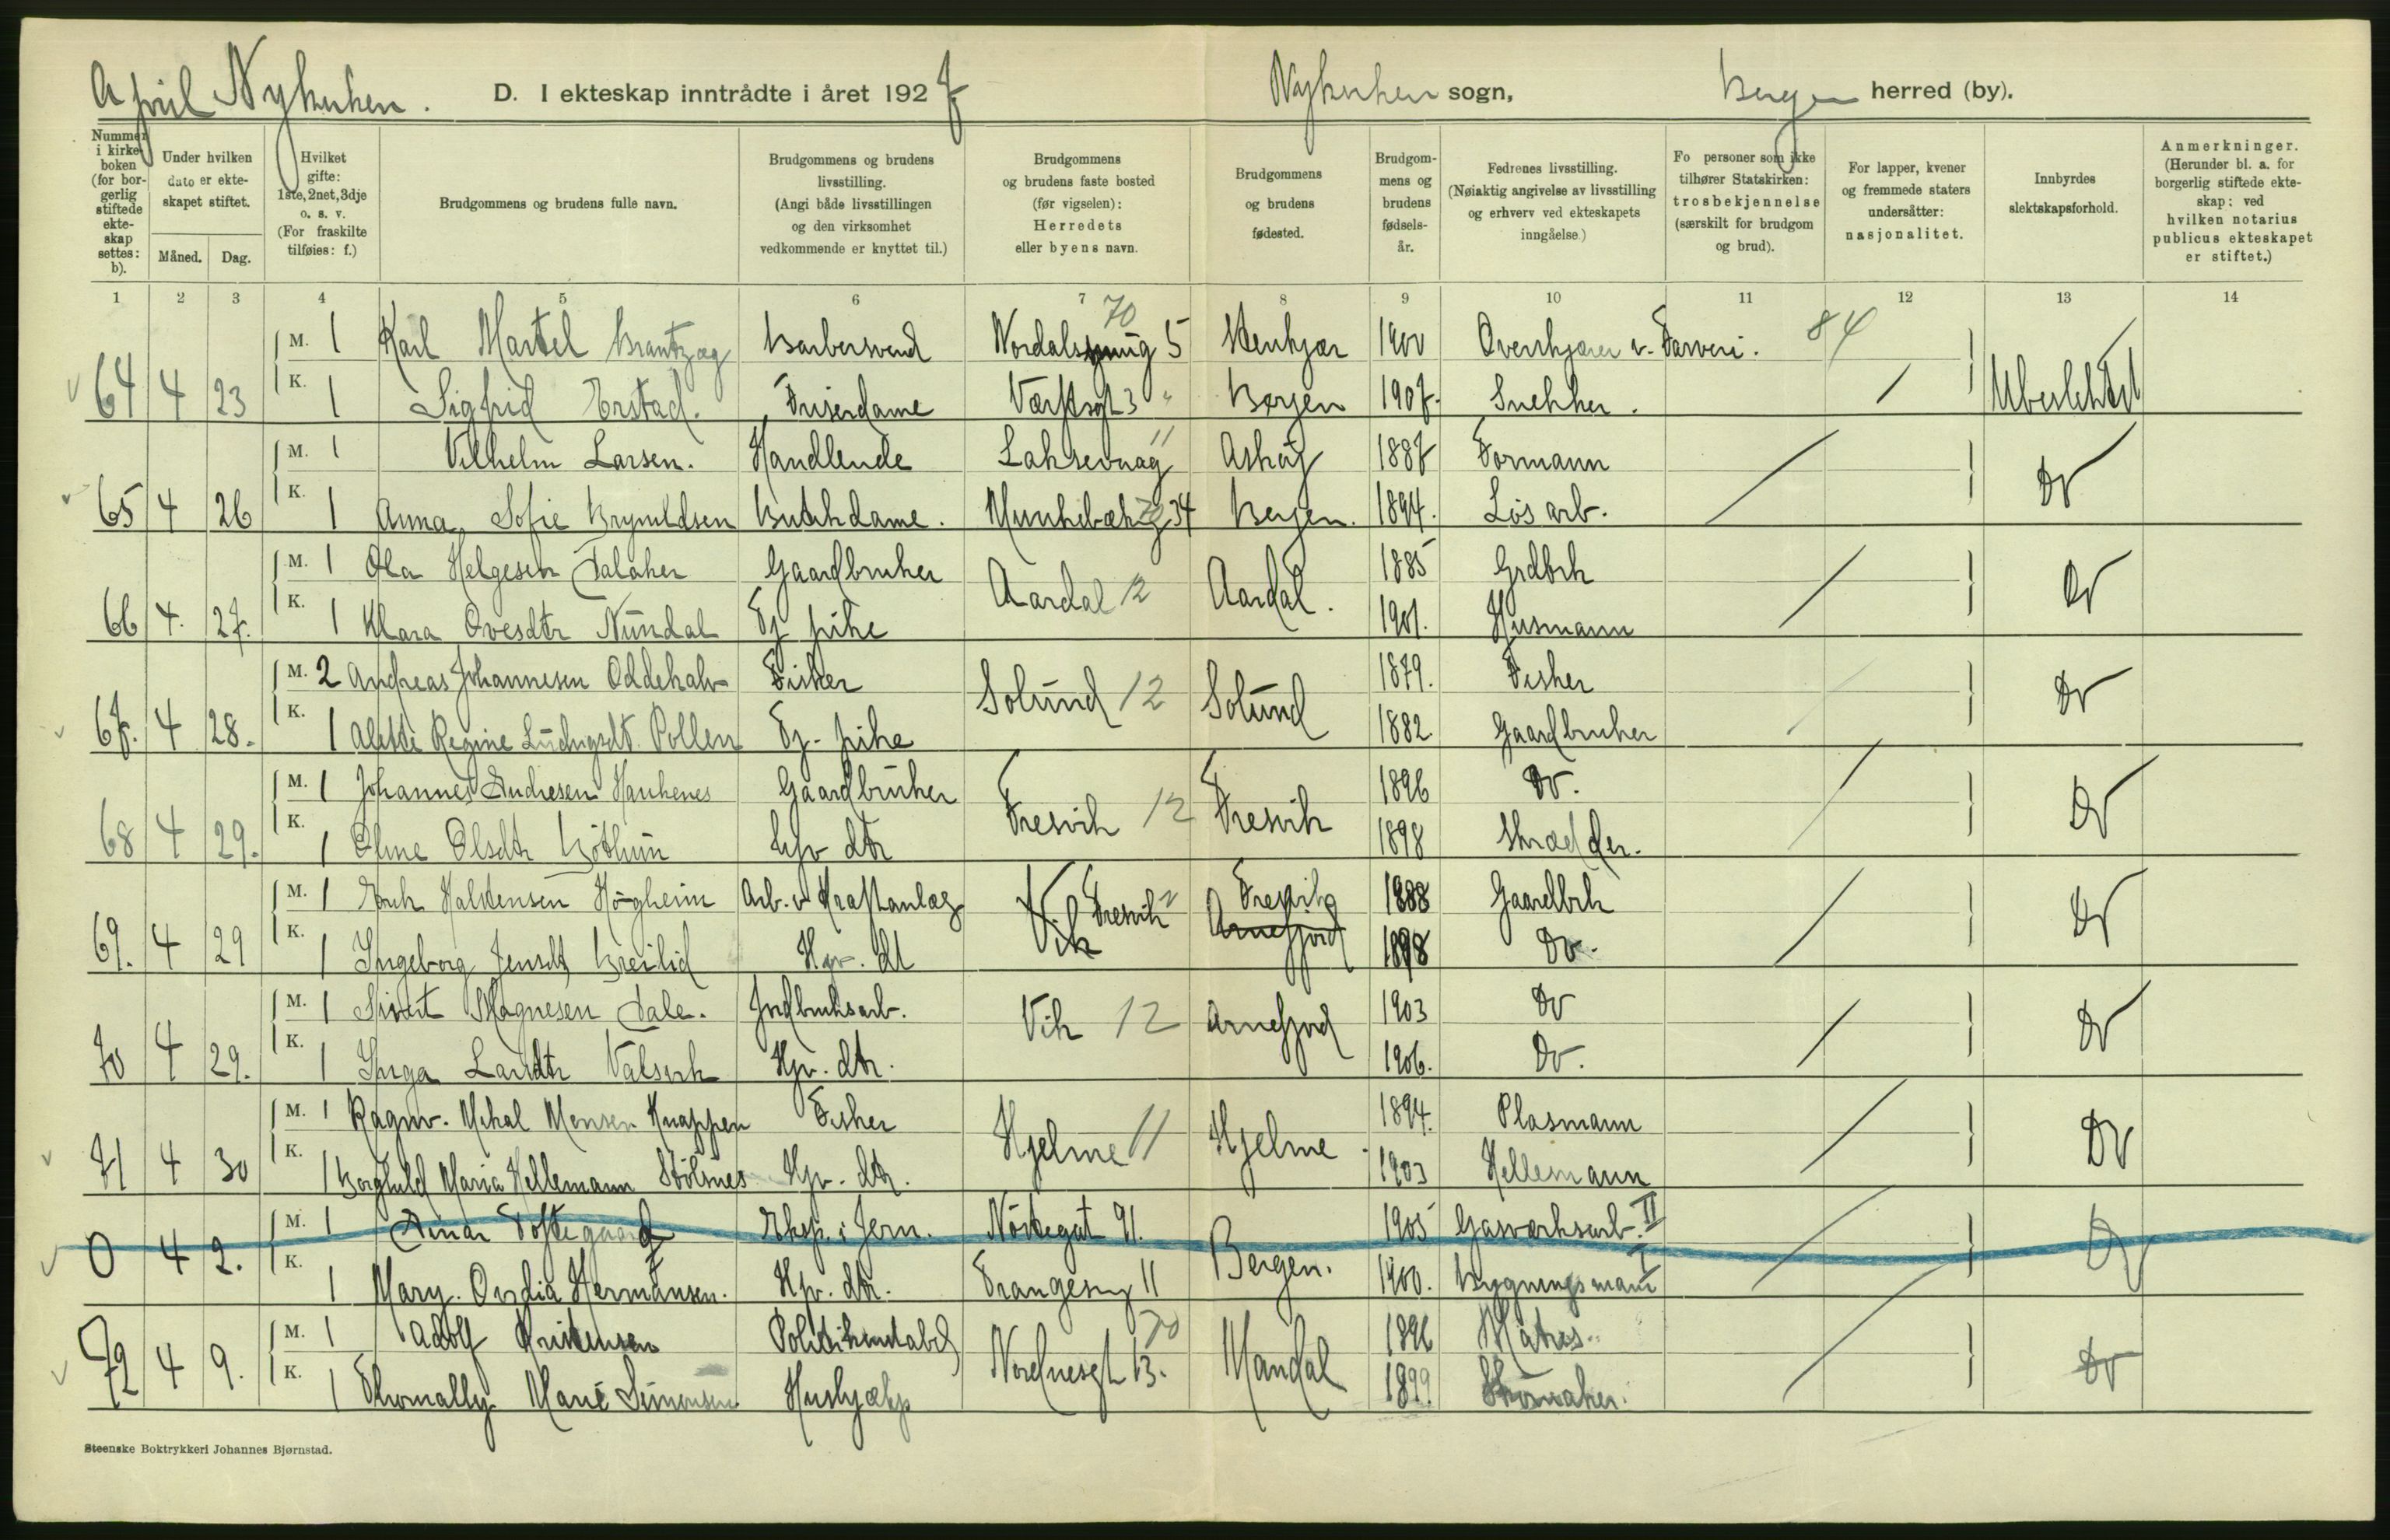 April Nykirken. D. I ekteskap inntrådte i året 1927 Nykirken sogn, Bergen herred (by).
Nummer i kirkeboken (for borgerlig stiftede ekteskap settes: b).
Under hvilken dato er ekteskapet stiftet.
Måned. Dag.
Hvilket gifte: 1ste, 2net, 3dje o. s. v. (For fraskilte tilføies: f.)
Brudgommens og brudens fulle navn.
Brudgommens og brudens livsstilling. (Angi både livsstillingen og den virksomhet vedkommende er knyttet til.)
Brudgommens og brudens faste bosted (før vigselen): Herredets eller byens navn.
Brudgommens og brudens fødested.
Brudgommens og brudens fødselsår.
Fedrenes livsstilling. (Nøiaktig angivelse av livsstilling og erhverv ved ekteskapets inngåelse.)
Fo personer som ikke tilhører Statskirken: trosbekjennelse (særskilt for brudgom og brud).
For lapper, kvener og fremmede staters undersåtter: nasjonalitet.
Innbyrdes slektskapsforhold.
Anmerkninger. (Herunder bl. a. for borgerlig stiftede ekteskap: ved hvilken notarius publicus ekteskapet er stiftet.)
1 2 3 4 5 6 7 8 9 10 11 12 13 14
M. 1 Karl Martel Brantzæg Barbersvend Nordalsmug 5 70 Stenkjær 1900 Overskjærer v. Farveri. 84
64 4 23 K. 1 Sigfrid Erstad. Friserdame Værftsgt 3 " Bergen 1907. Snekker. Ubeslektet
M. 1 Vilhelm Larsen. Handlende Laksevaag 11 Askøy 1887 Formann
65 4 26 K. 1 Anna Sofie Brynildsen Butikdame. Munkebækg 34 70 Bergen. 1894. Løsarb. Do
M. 1 Ola Helgesen Dalaker Gaardbruker Aardal 12 Aardal. 1885 Grdbrk
66 4. 27. K. 1 Klara Ovesdtr Nundal Tj pike 1901. Husmann Do
M. 2 Andreas Johannesen Oddekalv Fisker Solund 12 Solund 1879. Fisker
67. 4 28. K. 1 Alette Regine Ludvigsdt. Pollen Tj. pike 1882 Gaardbruker Do
M. 1 Johannes Andresen Haukenes Gaardbruker Fresvik 12 Fresvik 1896 Do.
68 4 29. K. 1 Oline Olsdtr Bøthun Hjv dtr 1898 Skrædder. Do
M. 1 Erik Halstensen Høgheim Arb. v. Kraftanlæg Vik Fresvik Fresvik 1888 Gaardbrk
69. 4 29 K. 1 Ingeborg Jensdt Breilid Hjv. dt Arnefjord 1898 Do. Do
M. 1 Sivert Magnesen Dale. Jordbruksarb. Vik 12 Arnefjord 1903 Do
70 4 29. K. 1 Inga Larsdtr Valsvik Hjv. dtr. 1906. Do. Do
M. 1 Ragnv. Mikal Monsen Knappen Fisker Hjelme 11 Hjelme 1894. Plasmann
71 4 30 K. 1 Borghild Maria Hellemann Stölsnes Hjv. dtr. 1903 Hellemann Do
M. 1 Einar Toftegaard Eksp. i Jern. Nöstegat 91. Bergen. 1905 Gasværksarb. II
0 4 2. K. 1 Mary. Ovidia Hermansen. Hjv. dtr. Trangesmg 11 1900. Bygningsmann I Do
M. 1 Adolf Kristensen Politikonstabel Nordnesgt 13. 70 Mandal 1896 Matros.
72 4 9. K. 1 Thomally Marie Simonsen Hushjælp 1899. Skomaker. Do
Steenske Boktrykkeri Johannes Bjørnstad.